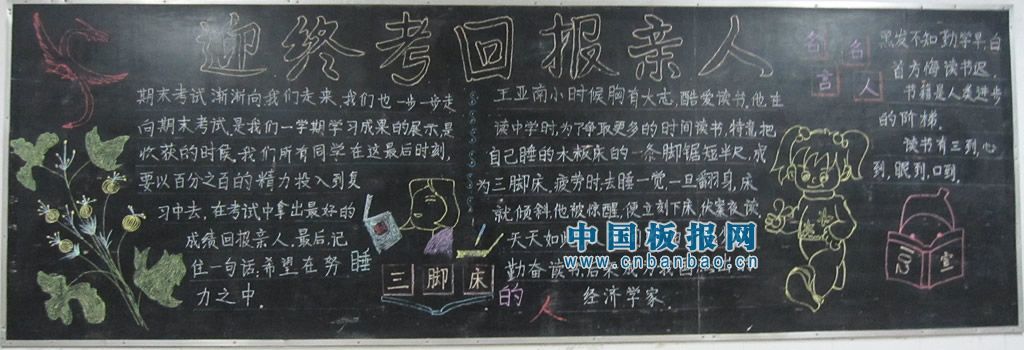 迎终考回报亲人
期末考试渐渐向我们走来,我们也一步一步走
向期末考试是我们一学期学习成果的展示是
收获的时候,我们所有同学在这最后时刻,
要以百分之百的精力投入到复
习中去,在考试中拿出最好的
成绩回报亲人,最后,记
住一句话:希望在努
力之中.
三脚床
王亚南小时候胸有大志,酷爱读书,他在
读中学时,为了争取更多的时间读书,特意把
自己睡的木板床的一条脚锯短半尺,成
为三脚床,疲劳时,去睡一觉,一旦翻身,床
就倾斜,他被惊醒,便立刻下床,伏案夜读,
天天如
勤奋读书,后来成为我
的 人 经济学家.
睡
名人名言
黑发不知勤学早,白
首方悔读书迟.
书籍是人类进步
的阶梯.
读书有三到,心
到,眼到,口到.
中国板报网
www.cnbanbao.cn